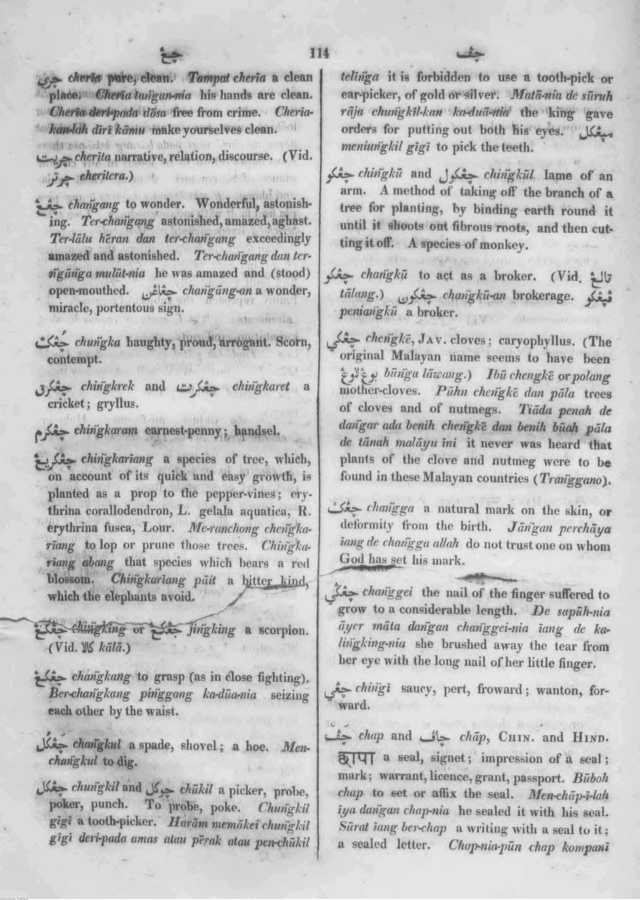 جغ 114 چف
چري cheria pure, clean. Tampat cheria a clean
place. Cheria tan͠gan-nia his hands are clean.
Cheria deri-pada dōsa free from crime. Cheria-
kan-lah diri kāmu make yourselves clean.
چريت cherīta narrative, relation, discourse. (Vid.
چرتر cheritera.)
چڠڠ chan͠gang to wonder. Wonderful, astonish-
ing. Ter-chan͠gang astonished, amazed, aghast.
Ter-lālu hēran dan ter-chan͠gang exceedingly
amazed and astonished. Ter-chan͠gang dan ter-
n͠gān͠ga mulūt-nia he was amazed and (stood)
open-mouthed. چڠاڠن chan͠gāng-an a wonder,
miracle, portentous sign.
چڠك chungka haughty, proud, arrogant. Scorn,
contempt.
چڠكرق chin͠gkrek and چڠكرت chin͠gkaret a
cricket; gryllus.
چڠكرم chin͠gkaram earnest-penny; handsel.
چڠكريڠ chin͠gkarīang a species of tree, which,
on account of its quick and easy growth, is
planted as a prop to the pepper-vines; ery-
thrina corallodendron, L. gelala aquatica, R.
erythrina fusca, Lour. Me-ranchong chen͠gka-
rīang to lop or prune those trees. Chin͠gka-
riang abang that species which bears a red
blossom. Chin͠gkariang pāit a bitter kind,
which the elephants avoid.
چڠكڠ chin͠gking or جڠكڠ jin͠gking a scorpion.
(Vid. كال kāla.)
چڠكڠ chan͠gkang to grasp (as in close fighting).
Ber-chan͠gkang pinggang ka-dūa-nia seizing
each other by the waist.
چڠكل chan͠gkul a spade, shovel; a hoe. Men-
chan͠gkul to dig.
چڠكل chun͠gkil and چوكل chūkil a picker, probe,
poker, punch. To probe, poke. Chun͠gkil
gīgī a tooth-picker. Harām memākei chun͠gkil
gīgī deri-pada amas atau pērak atau pen-chūkil
telin͠ga it is forbidden to use a tooth-pick or
ear-picker, of gold or silver. Matā-nia de sūruh
rāja chun͠gkil-kan ka-duā-nia the king gave
orders for putting out both his eyes. مڽڠكل
meniun͠gkil gīgī to pick the teeth.
چڠكو chin͠gkū and چڠكول chin͠gkūl lame of an
arm. A method of taking off the branch of a
tree for planting, by binding earth round it
until it shoots out fibrous roots, and then cut-
ting it off. A species of monkey.
چڠكو chan͠gkū to act as a broker. (Vid. تالڠ
tālang.) چڠكون chan͠gkū-an brokerage. ڤڽڠكو
penian͠gkū a broker.
چڠكي chen͠gkē, Jav. cloves; caryophyllus. (The
original Malayan name seems to have been
بوڠ لاوڠ būn͠ga lāwang.) Ibū chengkē or polang
mother-cloves. Pūhn chen͠gkē dan pāla trees
of cloves and of nutmegs. Tiāda penah de
dan͠gar ada benih chen͠gkē dan benih būah pāla
de tānah malāyu īni it never was heard that
plants of the clove and nutmeg were to be
found in these Malayan countries (Tran͠ggano).
چڠݢ chan͠gga a natural mark on the skin, or
deformity from the birth. Jān͠gan perchāya
īang de chan͠gga allah do not trust one on whom
God has set his mark.
چڠݢي chan͠ggei the nail of the finger suffered to
grow to a considerable length. De sapūh-nia
āyer māta dan͠gan chan͠ggei-nia īang de ka-
lin͠gking-nia she brushed away the tear from
her eye with the long nail of her little finger.
چڠي chin͠gī saucy, pert, froward; wanton, for-
ward.
چف chap and چاف chāp, Chin. and Hind.
छापा a seal, signet; impression of a seal;
mark; warrant, licence, grant, passport. Būboh
chap to set or affix the seal. Men-chāp-ī-lah
īya dan͠gan chap-nia he sealed it with his seal.
Sūrat īang ber-chap a writing with a seal to it;
a sealed letter. Chap-nia-pūn chap kompanī